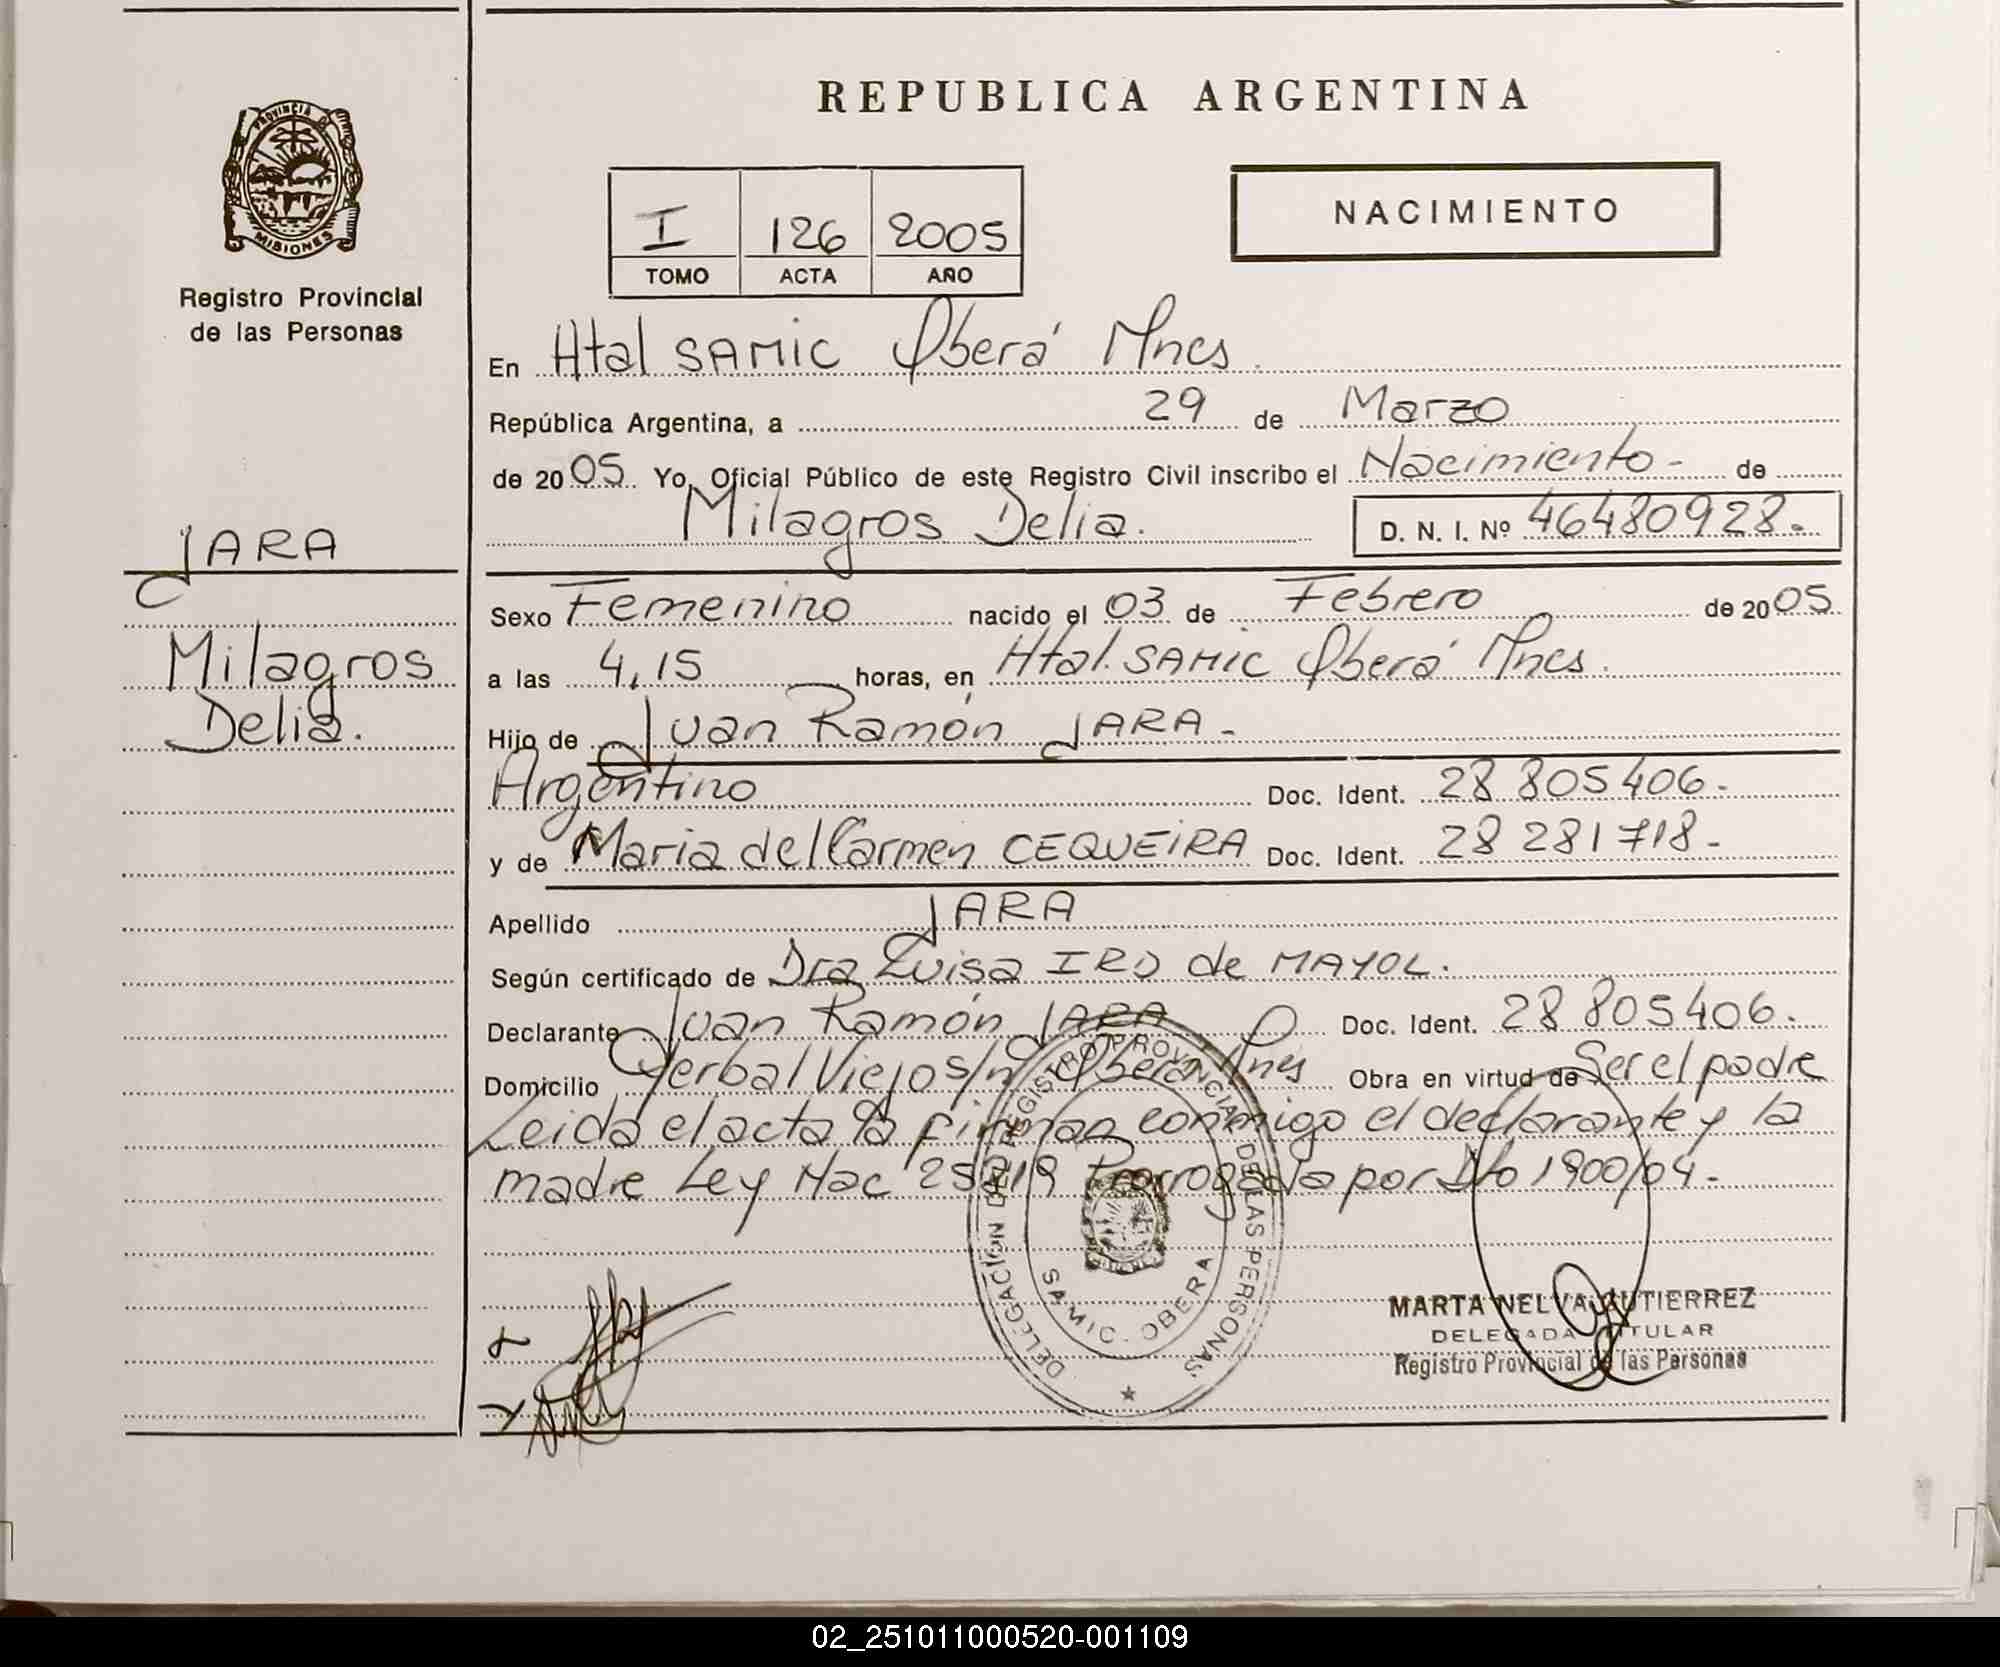 PROVINCIA DE
MISIONES
Registro Provincial
de las Personas
JARA
Milagros
Delia.
REPUBLICA ARGENTINA
I 126 2005
TOMO ACTA AÑO
NACIMIENTO
En Htal SAMIC Oberá Mnes
República Argentina, a 29 de Marzo
de 2005. Yo, Oficial Público de este Registro Civil inscribo el Nacimiento- de
Milagros Delia. D. N. I. Nº 46480928.-
Sexo Femenino nacido el 03 de Febrero de 2005
a las 4,15 horas, en Htal. SAMIC Oberá Mnes.
Hijo de Juan Ramón JARA-
Argentino Doc. Ident. 28 805406.-
y de Maria del Carmen CEQUEIRA Doc. Ident. 28 281718.-
Apellido JARA
Según certificado de Dra Luisa IRO de MAYOL.
Declarante Juan Ramón JARA Doc. Ident. 28 805406.
Domicilio Yerbal Viejo s/n Oberá Mnes Obra en virtud de Ser el padre
Leida el acta la firman conmigo el declarante y la
madre Ley Nac Prorrogada por Dto 1900/04.-
DELEGACION DEL REGISTRO PROVINCIAL DE LAS PERSONAS
SAMIC. OBERA
MARTA NELVA GUTIERREZ
DELEGADA TITULAR
Registro Provincial de las Personas
02_251011000520-001109